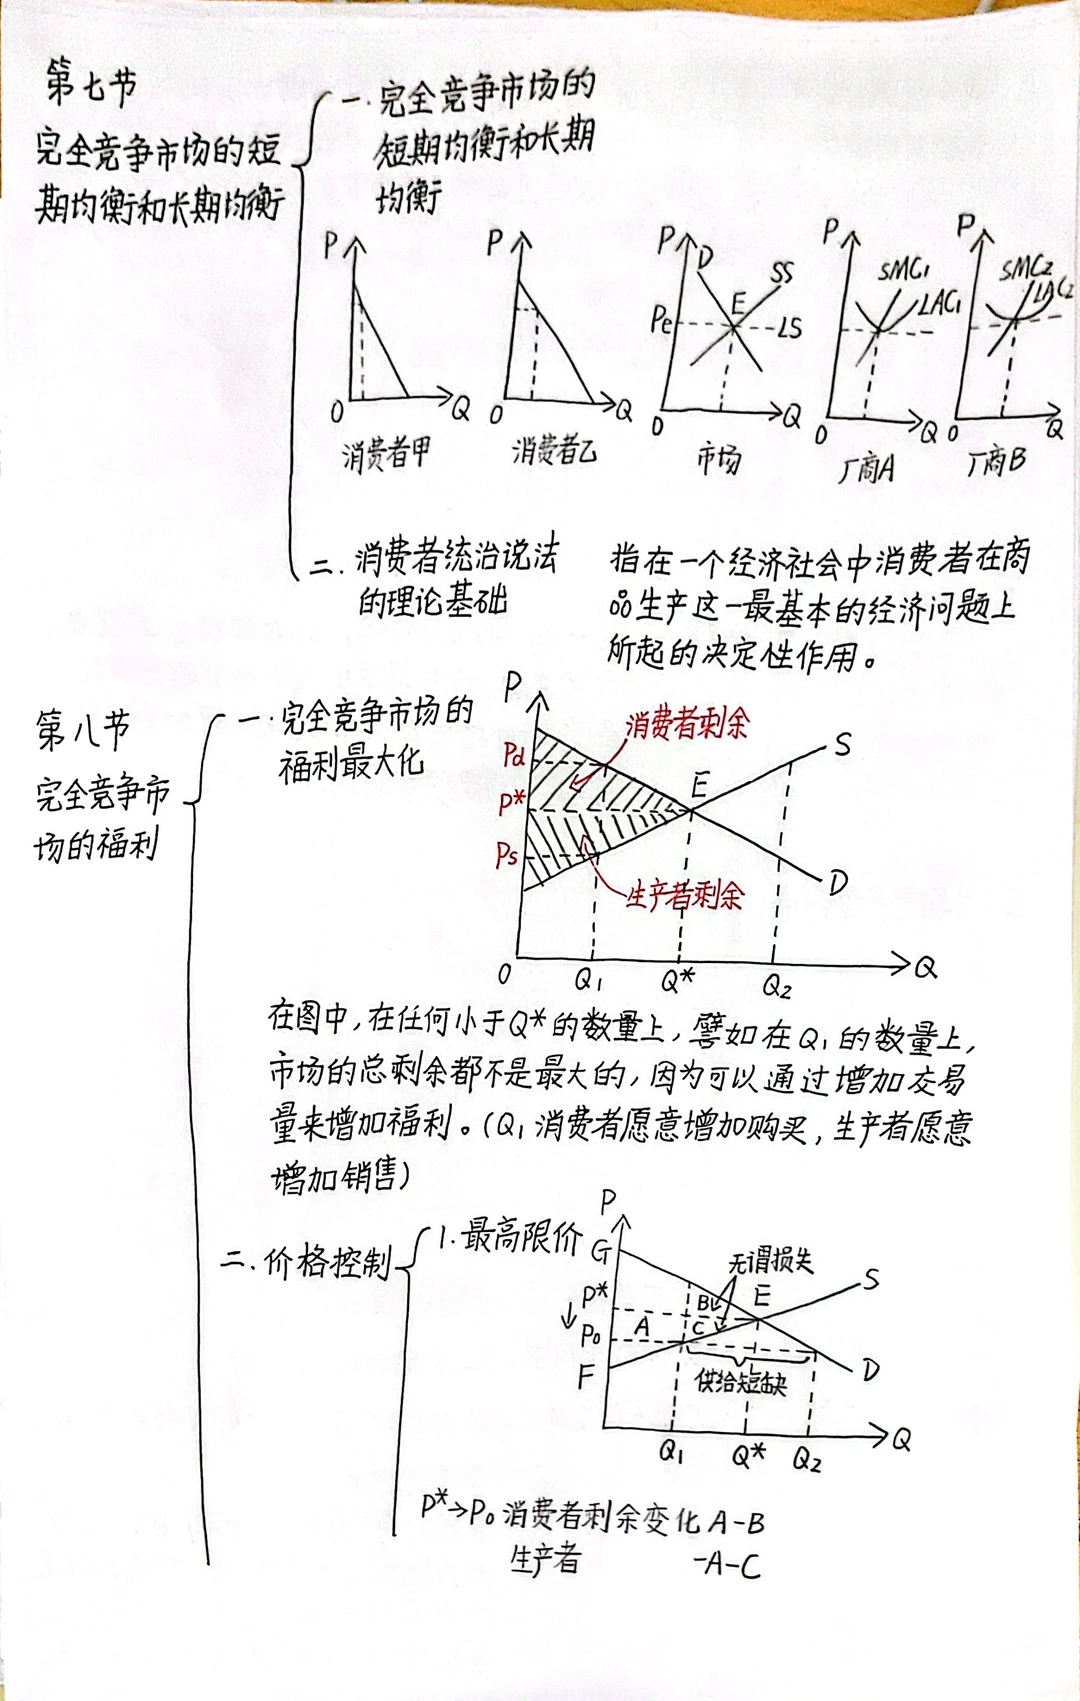 第七节
完全竞争市场的短
期均衡和长期均衡
一.完全竞争市场的
短期均衡和长期
均衡
P
O
Q
消费者甲
P
O
Q
消费者乙
P
D
SS
E
Pe
LS
O
Q
市场
P
SMC₁
LAC₁
O
Q
厂商A
P
SMC₂
LAC₂
O
Q
厂商B
二.消费者统治说法
的理论基础
指在一个经济社会中消费者在商
品生产这一最基本的经济问题上
所起的决定性作用。
第八节
完全竞争市
场的福利
一.完全竞争市场的
福利最大化
P
消费者剩余
S
Pd
P*
E
Ps
生产者剩余
D
O
Q₁
Q*
Q₂
Q
在图中,在任何小于Q*的数量上,譬如在Q₁的数量上,
市场的总剩余都不是最大的,因为可以通过增加交易
量来增加福利。(Q₁消费者愿意增加购买,生产者愿意
增加销售)
二.价格控制
1.最高限价
P
G
无谓损失
S
P*
B
E
A
C
P₀
F
供给短缺
D
Q₁
Q*
Q₂
Q
P*→P₀消费者剩余变化 A-B
生产者 -A-C